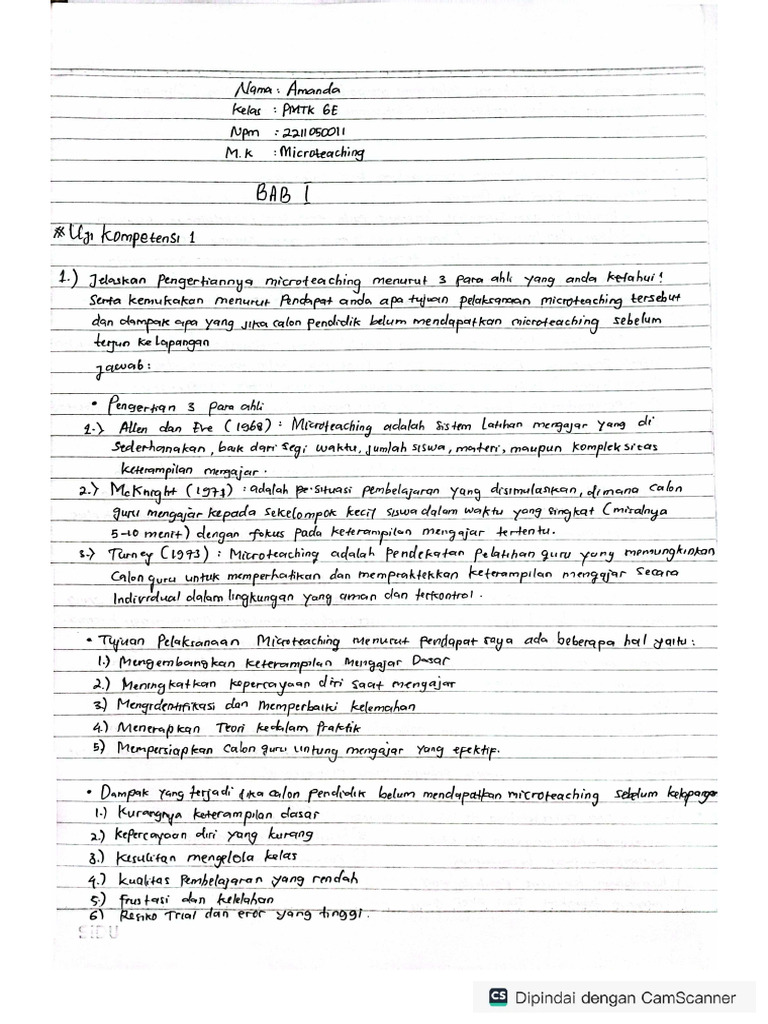 Nama : Amanda
Kelas : PMTK 6E
Npm : 2211050011
M.K : Microteaching
BAB I
* Uji Kompetensi 1
1.) Jelaskan Pengertiannya microteaching menurut 3 para ahli yang anda ketahui!
Serta kemukakan menurut Pendapat anda apa tujuan pelaksanaan microteaching tersebut
dan dampak apa yang jika calon pendidik belum mendapatkan microteaching sebelum
terjun ke lapangan
Jawab :
• Pengertian 3 para ahli
1.) Allen dan Eve (1968) : Microteaching adalah sistem Latihan mengajar yang di
Sederhanakan, baik dari segi waktu, jumlah siswa, materi, maupun kompleksitas
keterampilan mengajar.
2.) McKnight (1971) : adalah situasi pembelajaran yang disimulasikan, dimana calon
guru mengajar kepada sekelompok kecil siswa dalam waktu yang singkat (misalnya
5-10 menit) dengan fokus pada keterampilan mengajar tertentu.
3.) Turney (1973) : Microteaching adalah pendekatan pelatihan guru yang memungkinkan
Calon guru untuk memperhatikan dan mempraktekkan keterampilan mengajar secara
Individual dalam lingkungan yang aman dan terkontrol.
• Tujuan Pelaksanaan Microteaching menurut pendapat saya ada beberapa hal yaitu :
1.) Mengembangkan keterampilan Mengajar Dasar
2.) Meningkatkan kepercayaan diri saat mengajar
3) Mengidentifikasi dan memperbaiki kelemahan
4.) Menerapkan Teori kedalam Praktik
5) Mempersiapkan Calon guru untung mengajar yang efektif.
• Dampak yang terjadi jika calon pendidik belum mendapatkan microteaching sebelum kelapangan
1.) Kurangnya keterampilan dasar
2.) kepercayaan diri yang kurang
3.) Kesulitan mengelola kelas
4.) kualitas Pembelajaran yang rendah
5.) frustasi dan kelelahan
6) Resiko Trial dan eror yang tinggi.
SiDU
CS Dipindai dengan CamScanner